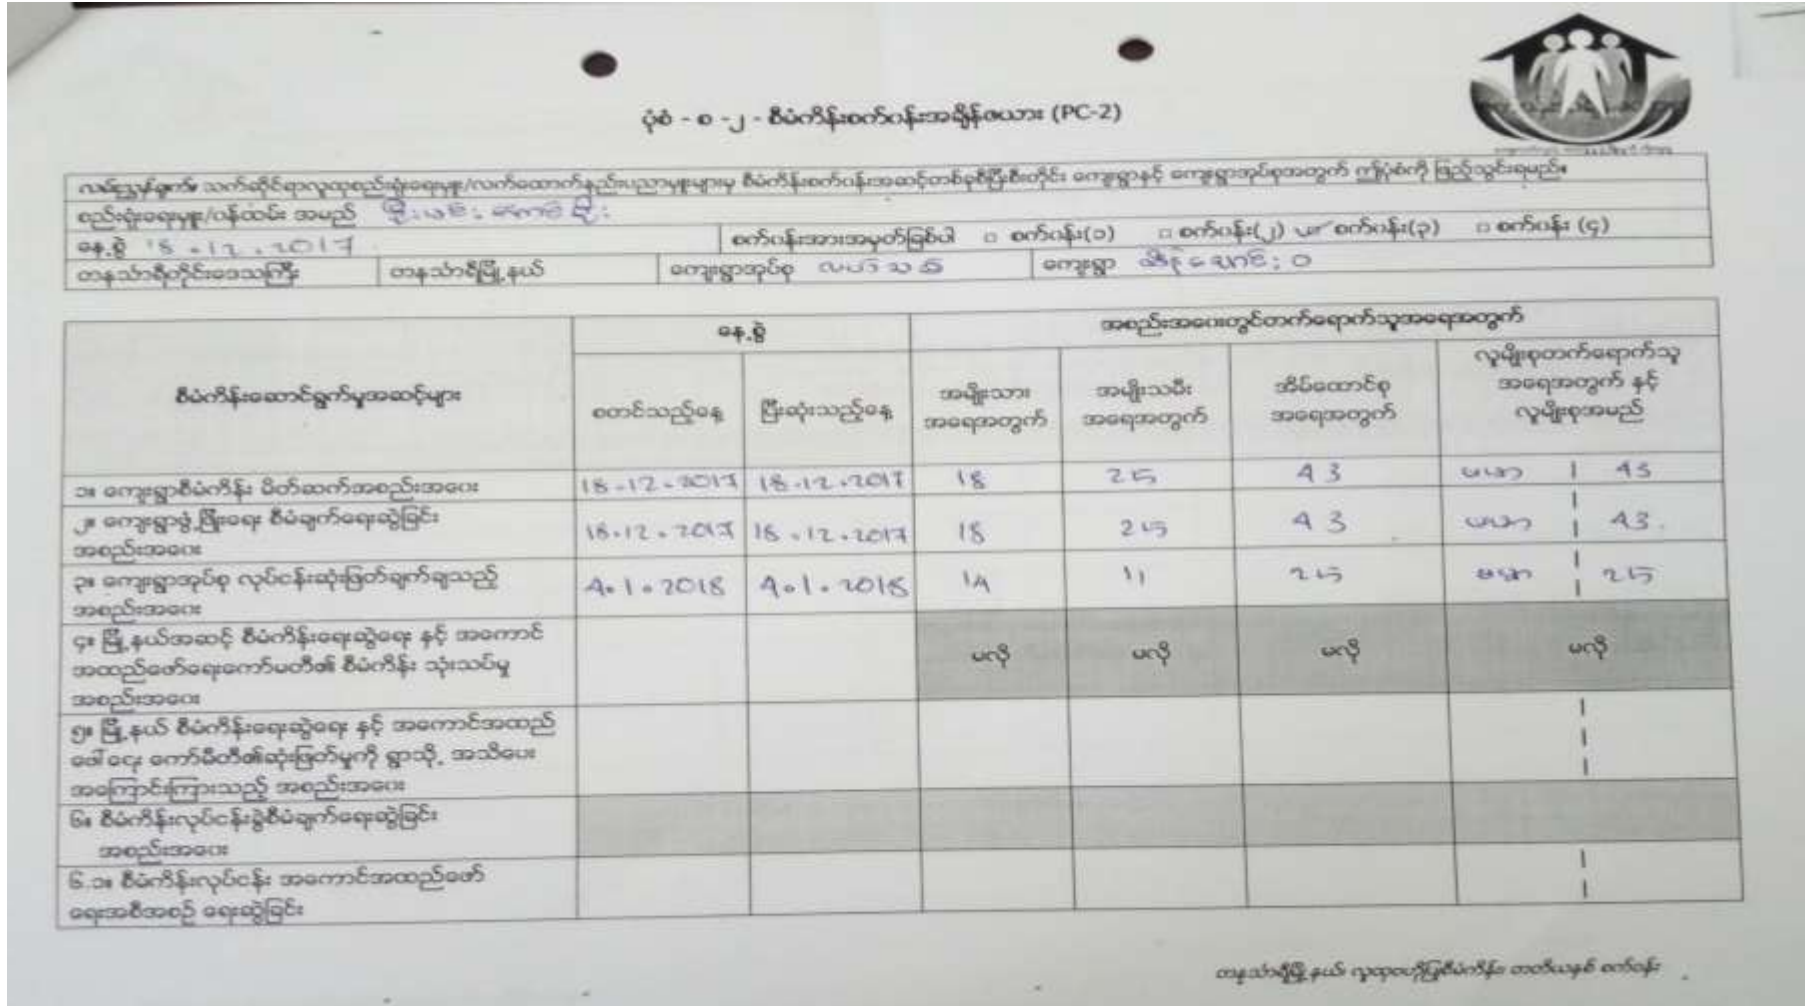 ပုံစံ - စ -၂ - စီမံကိန်းစက်ဝန်းအချိန်ဇယား (PC-2)
လမ်းညွှန်ချက်။ သက်ဆိုင်ရာလူထုစည်းရုံးရေးမှူး/လက်ထောက်နည်းပညာမှူးများမှ စီမံကိန်းစက်ဝန်းအဆင့်တစ်ခုစီပြီးစီးတိုင်း ကျေးရွာနှင့် ကျေးရွာအုပ်စုအတွက် ဤပုံစံကို ဖြည့်သွင်းရမည်။
စည်းရုံးရေးမှူး/ဝန်ထမ်း အမည်
နေ့စွဲ 18.12.2017 စက်ဝန်းအားအမှတ်ခြစ်ပါ □ စက်ဝန်း(၁) □ စက်ဝန်း(၂) စက်ဝန်း(၃) □ စက်ဝန်း (၄)
တနင်္သာရီတိုင်းဒေသကြီး တနင်္သာရီမြို့နယ် ကျေးရွာအုပ်စု ကျေးရွာ
နေ့စွဲ အစည်းအဝေးတွင်တက်ရောက်သူအရေအတွက်
စီမံကိန်းဆောင်ရွက်မှုအဆင့်များ စတင်သည့်နေ့ ပြီးဆုံးသည့်နေ့ အမျိုးသား အရေအတွက် အမျိုးသမီး အရေအတွက် အိမ်ထောင်စု အရေအတွက် လူမျိုးစုတက်ရောက်သူ အရေအတွက် နှင့် လူမျိုးစုအမည်
၁။ ကျေးရွာစီမံကိန်း မိတ်ဆက်အစည်းအဝေး 18.12.2017 18.12.2017 18 25 43 ဗမာ 43
၂။ ကျေးရွာဖွံ့ဖြိုးရေး စီမံချက်ရေးဆွဲခြင်း
အစည်းအဝေး 18.12.2017 18.12.2017 18 25 43 ဗမာ 43
၃။ ကျေးရွာအုပ်စု လုပ်ငန်းဆုံးဖြတ်ချက်ချသည့်
အစည်းအဝေး 4.1.2018 4.1.2018 14 11 25 ဗမာ 25
၄။ မြို့နယ်အဆင့် စီမံကိန်းရေးဆွဲရေး နှင့် အကောင်
အထည်ဖော်ရေးကော်မတီ၏ စီမံကိန်း သုံးသပ်မှု
အစည်းအဝေး မလို မလို မလို မလို
၅။ မြို့နယ် စီမံကိန်းရေးဆွဲရေး နှင့် အကောင်အထည်
ဖေါ်ရေး ကော်မီတီ၏ဆုံးဖြတ်မှုကို ရွာသို့ အသိပေး
အကြောင်းကြားသည့် အစည်းအဝေး
၆။ စီမံကိန်းလုပ်ငန်းခွဲစီမံချက်ရေးဆွဲခြင်း
အစည်းအဝေး
၆.၁။ စီမံကိန်းလုပ်ငန်း အကောင်အထည်ဖော်
ရေးအစီအစဉ် ရေးဆွဲခြင်း
တနင်္သာရီမြို့နယ်၊ လူထုဗဟိုပြုစီမံကိန်း၊ တတိယနှစ် စက်ဝန်း